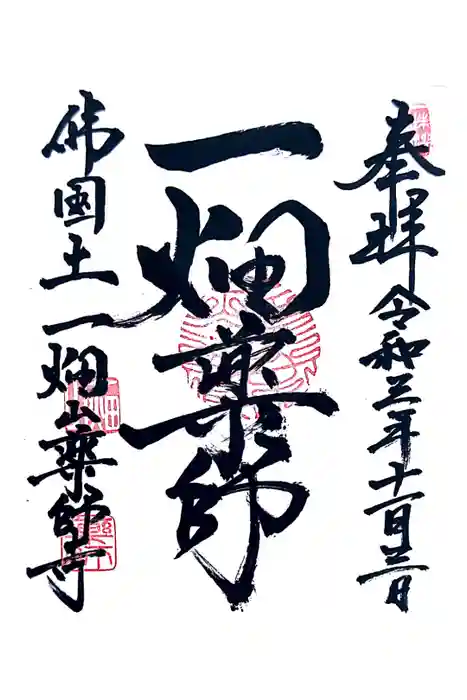 奉拝 令和三年十一月三日
一畑薬師
佛国土 一畑山薬師寺